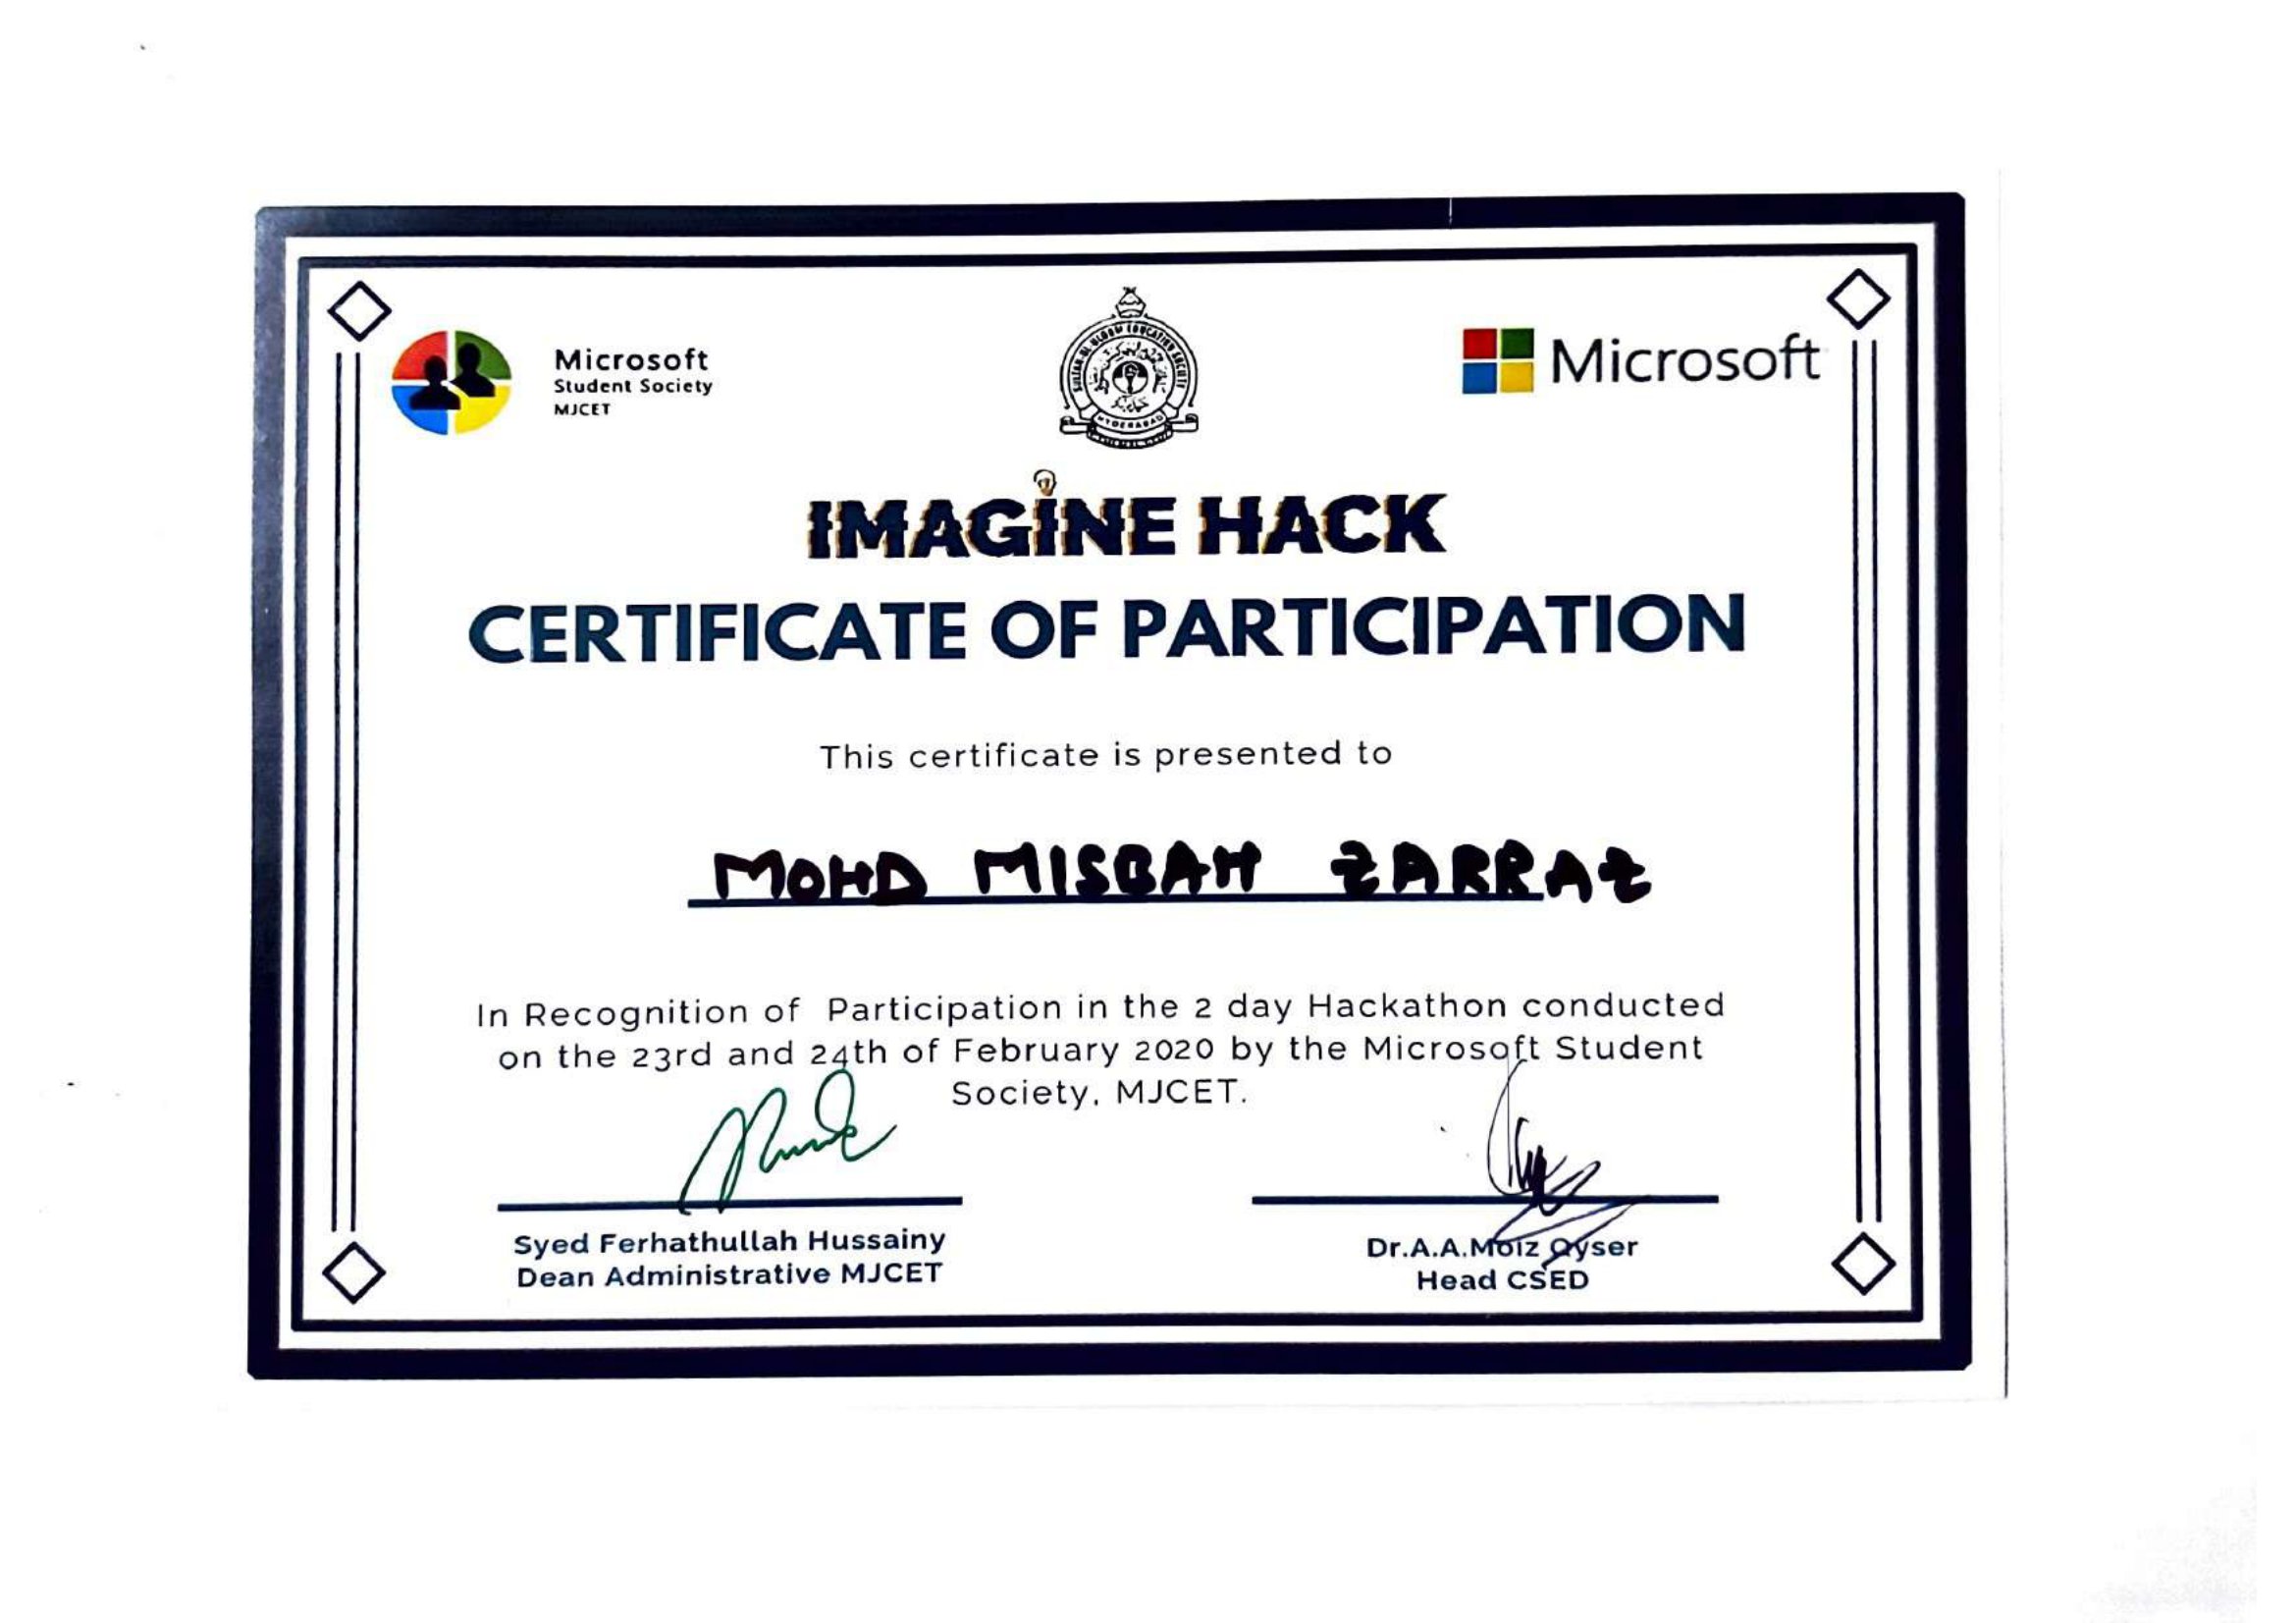 Microsoft
Student Society
MJCET
SULTAN-UL-ULOOM EDUCATION SOCIETY
HYDERABAD
Microsoft
IMAGINE HACK
CERTIFICATE OF PARTICIPATION
This certificate is presented to
MOHD MISBAH ZARRAZ
In Recognition of Participation in the 2 day Hackathon conducted
on the 23rd and 24th of February 2020 by the Microsoft Student
Society, MJCET.
Syed Ferhathullah Hussainy
Dean Administrative MJCET
Dr.A.A.Moiz Qyser
Head CSED